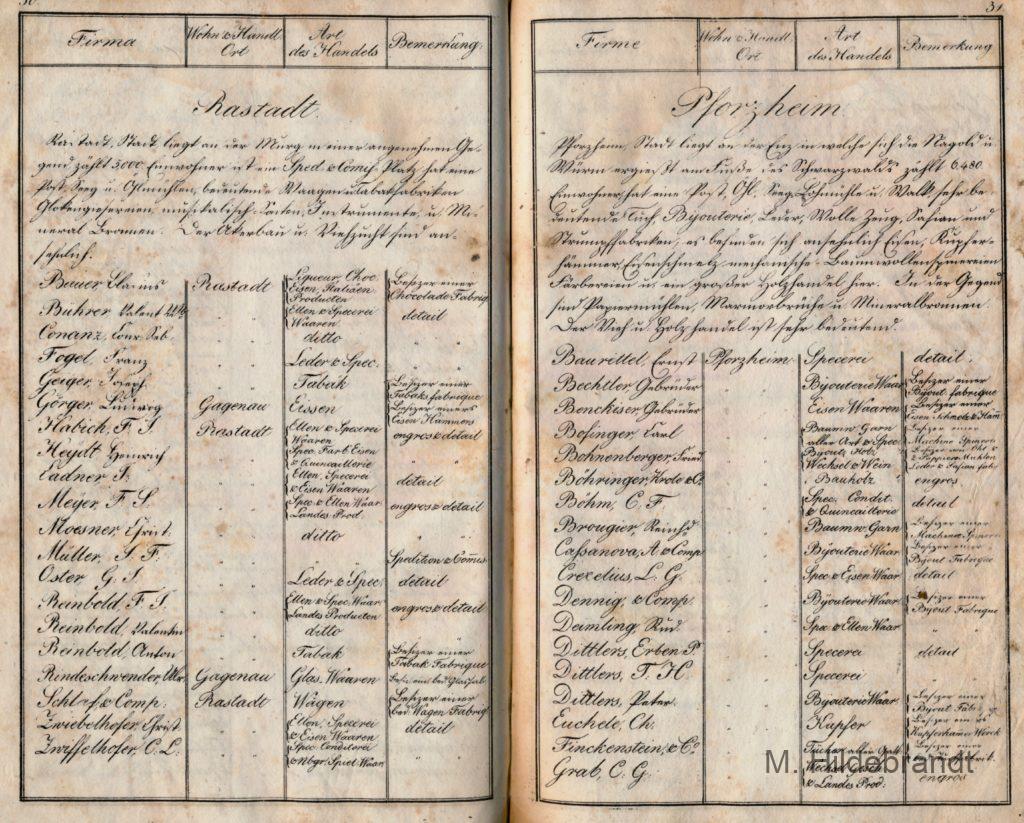 30.
Firma
Wohn & Handl Ort
Art des Handels
Bemerkung.
Rastadt.
Rastadt, Stadt liegt an der Murg in einer angenehmen Ge-
gend zählt 5000 Einwohner ist ein Sped. & Comiss. Platz hat eine
Post, Seeg u. Ohlmühlen, bedeutende Waagen u. Tabakfabriken
Glokengiesereien, musikalisch. Saiten, Instrumente, u. Mi-
neral Bronnen. Der Akerbau u. Viehzucht sind an-
sehnlich.
Bauer Rastadt Liqueur, Choc. Eisen, Italiäen. Producten Besitzer einer Chocolade Fabriq
Bührer, Valent Ellen & Specerei Waaren detail
Conanz, Conr. Seb. ditto
Fogel, Franz Leder & Spec.
Geiger, Joseph. Tabak Besizer einer Tabaks fabrique
Görger, Ludwog Gagenau Eissen Besizer eines Eisen Hämmers
Habich, F. J. Rastadt Ellen & Specerei Waaren engros & detail
Heydt Heinrich Spec. Farb Eisen & Quincaillerie
Ladner F. Ellen, Specerei & Eisen Waaren detail
Meyer, F. S. Spec & Ellen Waar Landes Prod. engros & detail
Moesner, Christ. ditto
Müller, S. F. Spedition & Comiss
Oster G. J. Leder & Spec. detail
Reinbold, F. J. Ellen & Spec. Waar. Landes Producten engros & detail
Reinbold, Valentin ditto
Reinbold, Anton Tabak Besizer einer Tabak Fabrique
Rindeschwender, Gagenau Glas Waaren
Schlaf & Comp. Rastadt Wägen Besizer einer bed. Wagen Fabriq
Zwiebelhofer, Christ. Ellen, Specerei & Eisen Waaren detail
Zwiffelhofer, C. L. Spec. Conditerei & Nbgr. Spiel Waar
31.
Firme
Wohn & Handl Ort
Art des Handels
Bemerkung
Pforzheim.
Pforzheim, Stadt liegt an der Enz in welche sich die Nagold u.
Würm ergiest am Fuße des Schwarzwalds zählt 6,480
Einwohner hat eine Post, Ohl, Seeg, Lohmühle u. Walk sehr be-
deutende Tuch, Bijouterie, Leder, Wolle Zeug, Safian und
Strumpffabriken, es befinden sich ansehnlich Eisen, Kupfer-
hämmer, Eisenschmelz mechanische Baumwollenspinereien
Färbereien u. ein großer Holzhandel hier. In der Gegend
sind Papiermühlen, Marmorbrüche u. Mineralbronnen.
Der Vieh u. Holzhandel ist sehr bedeutend.
Baurettel, Ernst Pforzheim Specerei detail.
Bechtler, Gebrüder Bijouterie Waar Besizer einer Bijout. fabrique
Benckiser, Gebrüder Eisen Waaren Besizer einer Eisen Schmelz & Hamm
Bosinger, Carl Baumw. Garn aller Art & Spec Besizer einer Machine Spinerei
Bohnenberger, Fried Bijout. Holz Wechsel & Wein
Böhringer, Krole & Co Bauholz engros
Böhm, C. F. Spec. Condit. & Quincaillerie detail
Brougier, Reinhd. Baumw. Garn Besizer einer Machine Spinerei
Cassanova, A & Comp Bijouterie Waar Besizer einer Bijout Fabrique
Crecelius, L. G. Spec & Eisen Waar detail
Dennig, & Comp. Bijouterie Waar Besizer einer Bijout Fabrique
Deimling, Rud. Spec & Ellen Waar
Dittlers, Erben P. Specerei detail
Dittlers, F. H Specerei
Dittlers, Peter. Bijouterie Waar Besizer einer Bijout Fabr.
Euchele, Ch. Kupfer Besizer eines Kupferhamer Werck
Finckenstein, & Co. Tücher allen Gatt. Besizer einer
Grab, C. G. Wechsel Gesch. & Landes Prod: engros
M. Hildebrandt